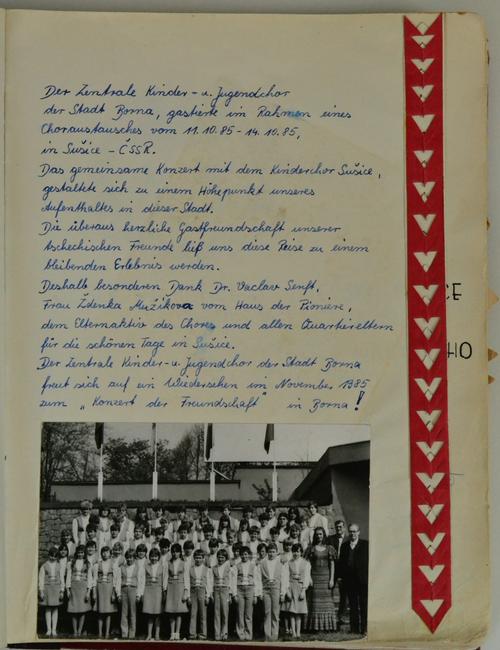 Der Zentrale Kinder- u. Jugendchor
der Stadt Borna, gastierte im Rahmen eines
Choraustausches vom 11.10.85 - 14.10.85,
in Sušice - ČSSR.
Das gemeinsame Konzert mit dem Kinderchor Sušice,
gestaltete sich zu einem Höhepunkt unseres
Aufenthaltes in dieser Stadt.
Die überaus herzliche Gastfreundschaft unserer
tschechischen Freunde ließ uns diese Reise zu einem
bleibenden Erlebnis werden.
Deshalb besonderen Dank Dr. Vaclav Senft,
Frau Ždenka Mužikova vom Haus der Pioniere,
dem Elternaktiv des Chores und allen Quartiereltern
für die schönen Tage in Sušice.
Der Zentrale Kinder- u. Jugendchor der Stadt Borna
freut sich auf ein Wiedersehen im November 1985
zum „Konzert der Freundschaft" in Borna!
CE
HO